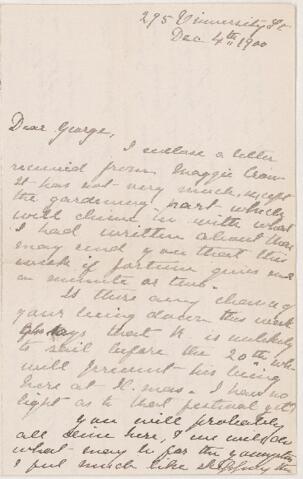 295 University St
Dec 4th 1900
Dear George,
I inclose a letter
received from Maggie
It has not very much, except
the gardening part which
will chime in with what
I had written about than
may send you that this
week if fortune gives me
a minute or two.
Is there any chance of
your being down this week
says that K is unlikely
to sail before the 20th which
will prevent his being
here at X.mas. I have no
light as to that festival yet
you will probably
all dine here, & we will
what may be for the youngsters
I feel much like